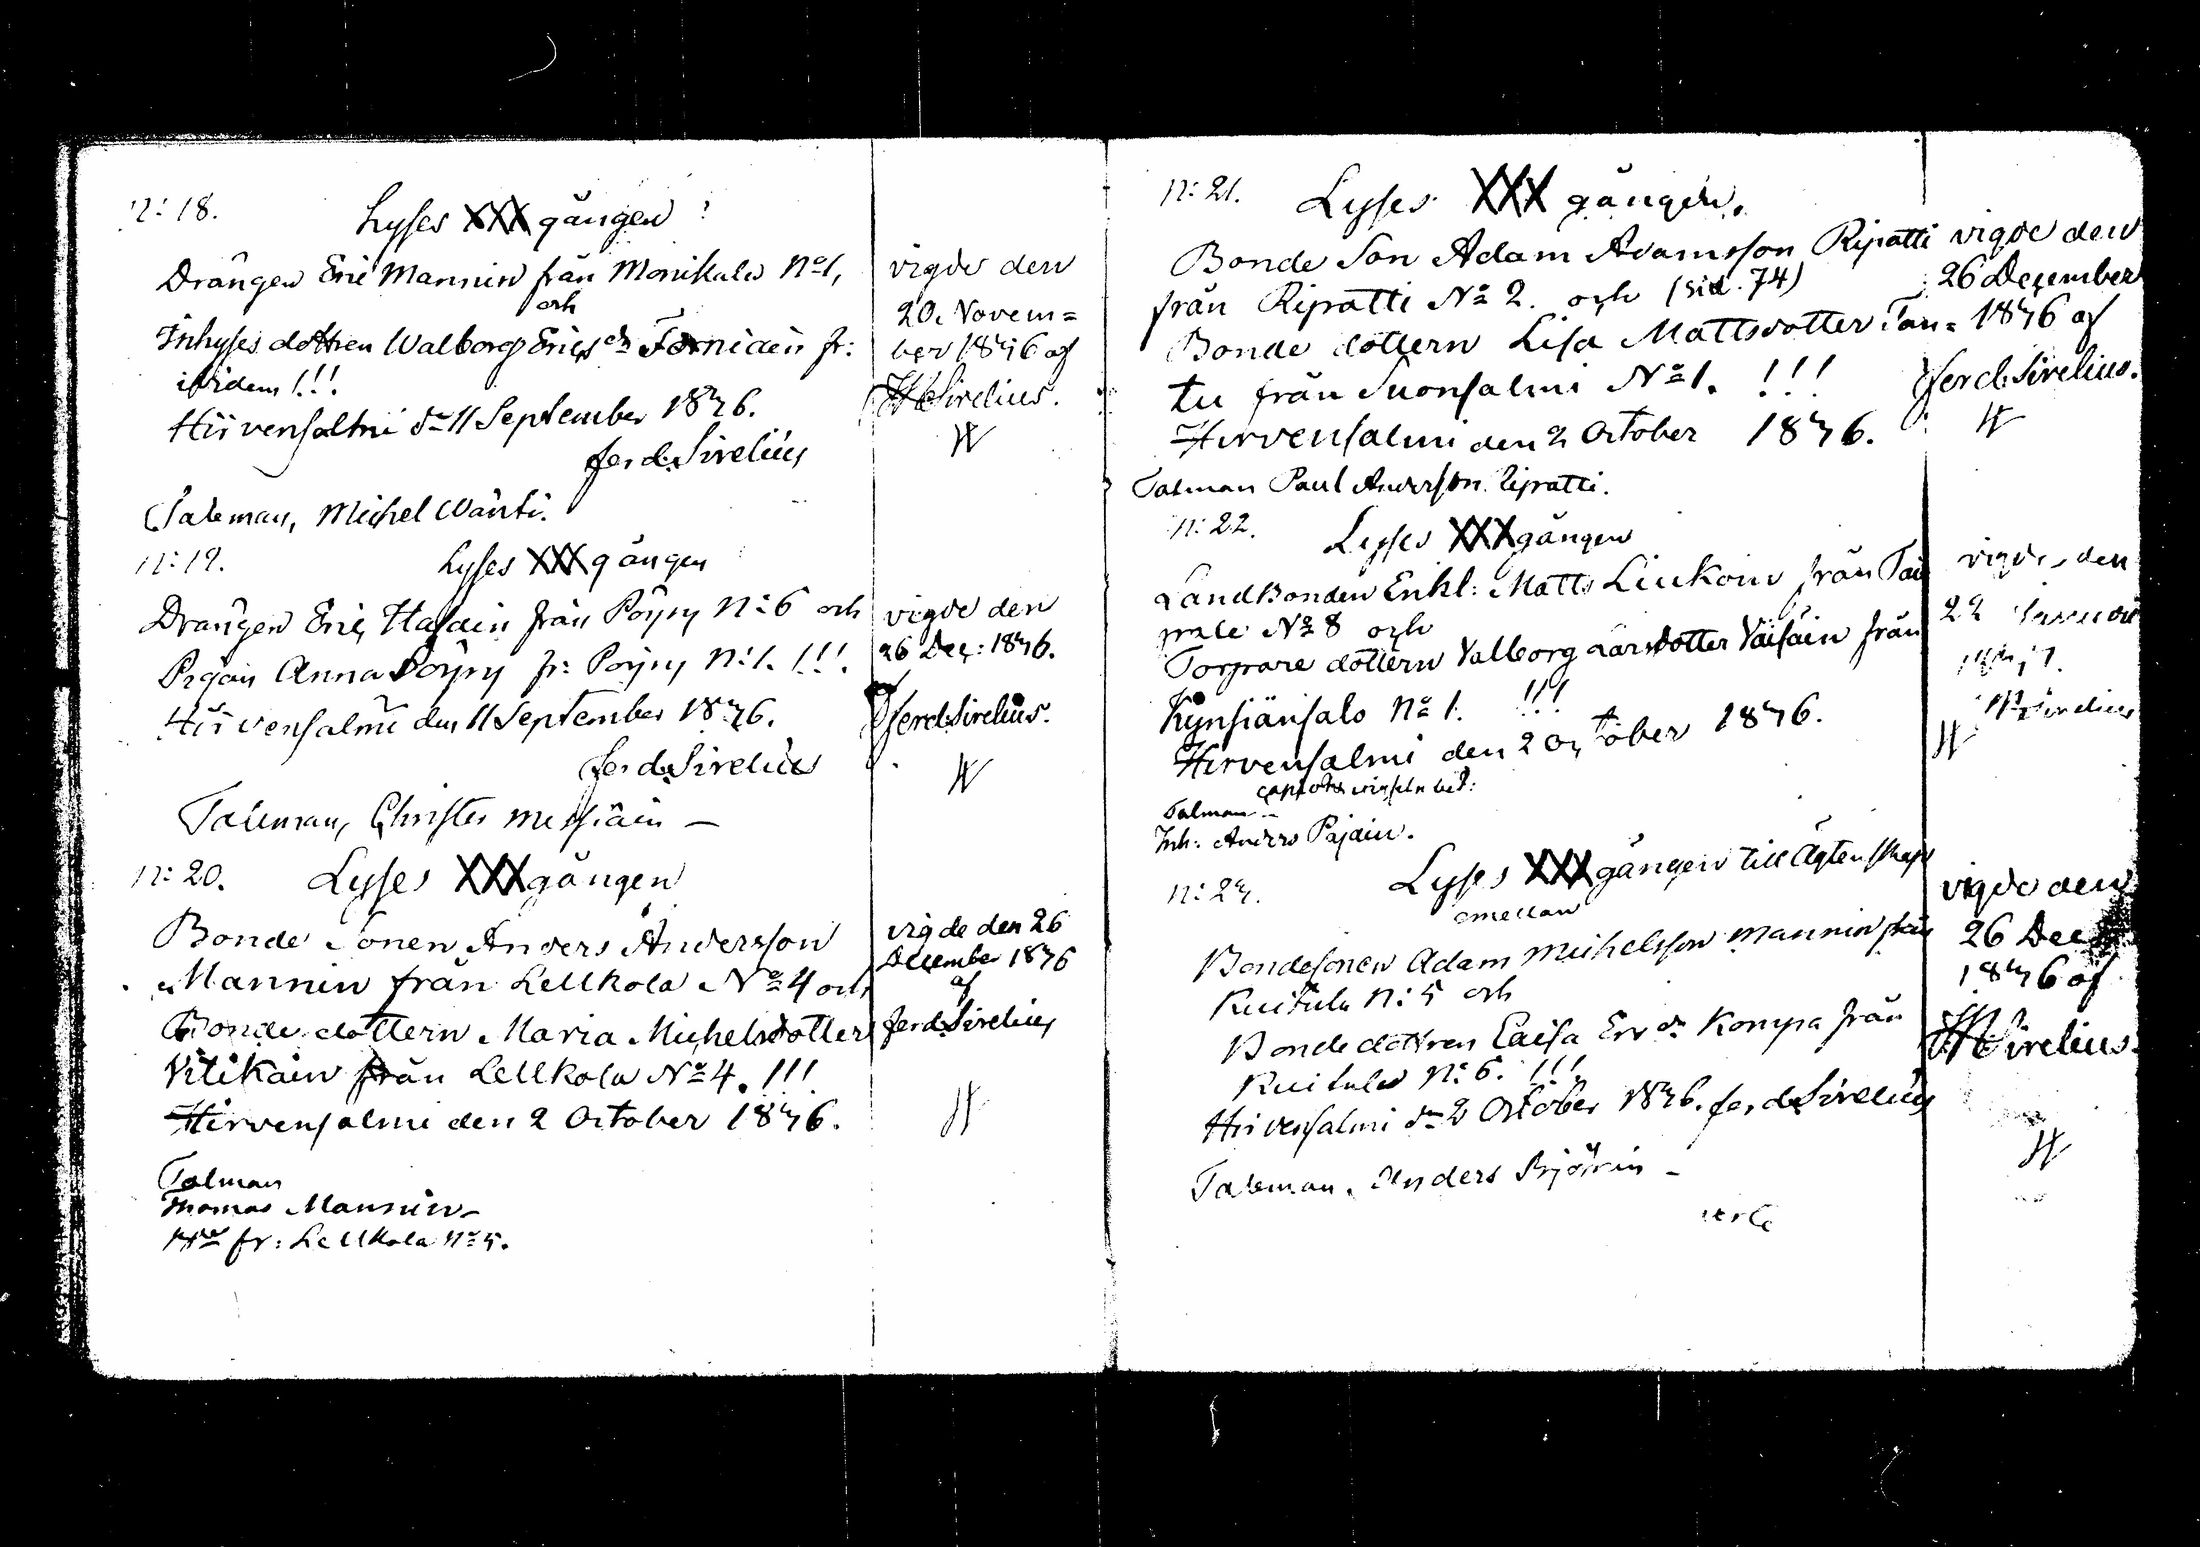 n: 18.
Lyses XXX gången
Drängen Eric Mannin från Monikala No 1,
och
Inhyses dottren Walborg Erics dr Forniain fr:
ibidem !!!
Hirvensalmi dn 11 September 1836.
Ferd. Sirelius
Taleman, Michel Wänti.
vigde den
20. Novem=
ber 1836 af
Sirelius.
n: 19.
Lyses XXX gången
Drängen Eric Hasain från Pöyry N: 6 och
Pigan Anna Pöyry fr: Pöyry N: 1. !!!
Hirvensalmi den 11 September 1836.
Ferd. Sirelius
Taleman, Christer
vigde den
26 Dec: 1836.
Ferd. Sirelius.
n: 20.
Lyses XXX gången
Bonde Sonen Anders Andersson
Mannin från Lellkola No 4 och
Bonde dottern Maria Michelsdotter
Vitikain från Lellkola No 4. !!!
Hirvensalmi den 2 October 1836.
Talman
Thomas Mannin
fr: Lellkola No 5.
vigde den 26
December 1836
af
Ferd. Sirelius
n: 21.
Lyses XXX gången.
Bonde Son Adam Adamsson Ripatti
från Ripatti No 2. och (sid. 74)
Bonde dottern Lisa Mattsdotter Tan=
tu från Suonsalmi No 1. !!!
Hirvensalmi den 2 October 1836.
Talman Paul Andersson Ripatti.
vigde den
26 December
1836 af
Ferd. Sirelius.
n: 22.
Lyses XXX gången
LandBonden Enkl: Matts Liukoin från
No 8 och
Torpare dottern Valborg Larsdotter Väisäin från
Kynsiänsalo No 1. !!!
Hirvensalmi den 2 October 1836.
Talman
Inh: Anders Pajain.
vigde den
22
Sirelius
n: 23.
Lyses XXX gången till Ägtenskap
emellan
Bondesonen Adam Michelsson Mannin från
Kuitula N: 5 och
Bondedottren Caisa Ers dr Kompa från
Kuitula N: 6. !!!
Hirvensalmi dn 2 October 1836. Ferd. Sirelius
Taleman, Anders Björnin
vigde den
26 Dec
1836 af
Sirelius.